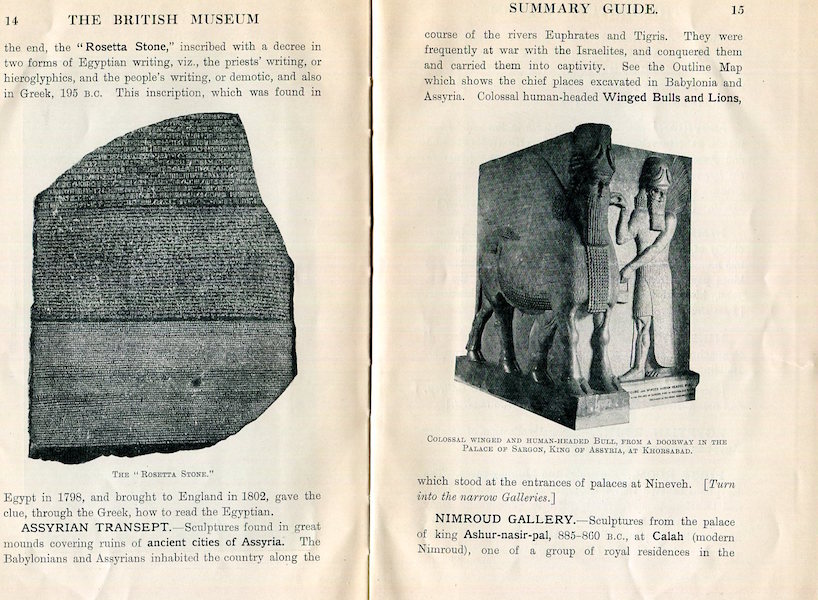 14 THE BRITISH MUSEUM
the end, the "Rosetta Stone," inscribed with a decree in
two forms of Egyptian writing, viz., the priests' writing, or
hieroglyphics, and the people's writing, or demotic, and also
in Greek, 195 B.C. This inscription, which was found in
THE "ROSETTA STONE."
Egypt in 1798, and brought to England in 1802, gave the
clue, through the Greek, how to read the Egyptian.
ASSYRIAN TRANSEPT.—Sculptures found in great
mounds covering ruins of ancient cities of Assyria. The
Babylonians and Assyrians inhabited the country along the
SUMMARY GUIDE. 15
course of the rivers Euphrates and Tigris. They were
frequently at war with the Israelites, and conquered them
and carried them into captivity. See the Outline Map
which shows the chief places excavated in Babylonia and
Assyria. Colossal human-headed Winged Bulls and Lions,
COLOSSAL WINGED AND HUMAN-HEADED BULL, FROM A DOORWAY IN THE
PALACE OF SARGON, KING OF ASSYRIA, AT KHORSABAD.
which stood at the entrances of palaces at Nineveh. [Turn
into the narrow Galleries.]
NIMROUD GALLERY.—Sculptures from the palace
of king Ashur-nasir-pal, 885-860 B.C., at Calah (modern
Nimroud), one of a group of royal residences in the